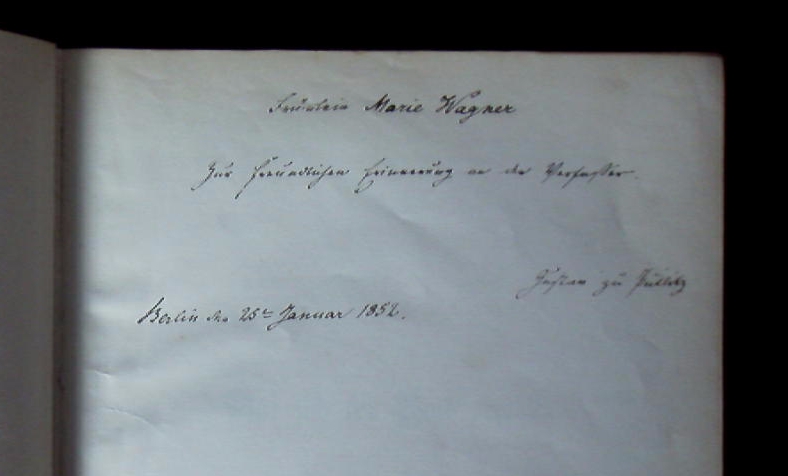 Fräulein Marie Wagner
Zur freundlichen Erinnerung an den Verfasser.
Gustav zu Putlitz
Berlin den 25t Januar 1852.